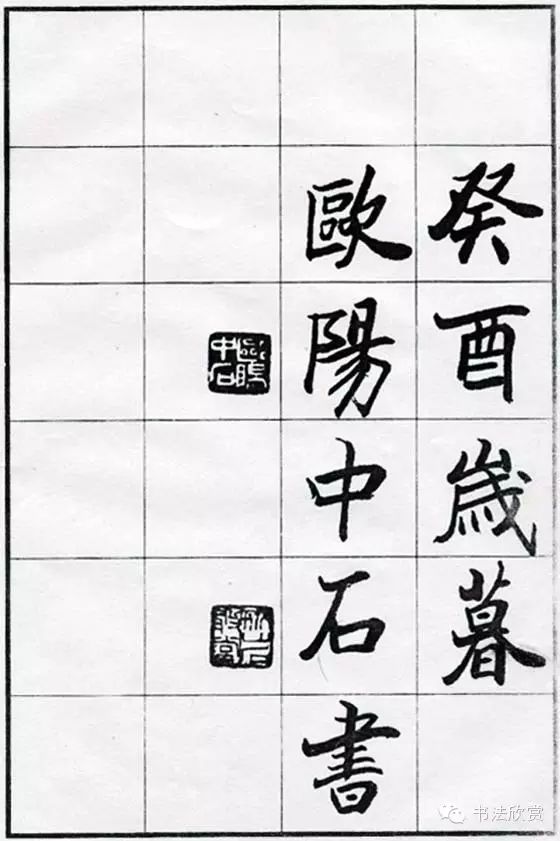 癸酉歲暮
歐陽中石書
歐陽中石
书法欣赏